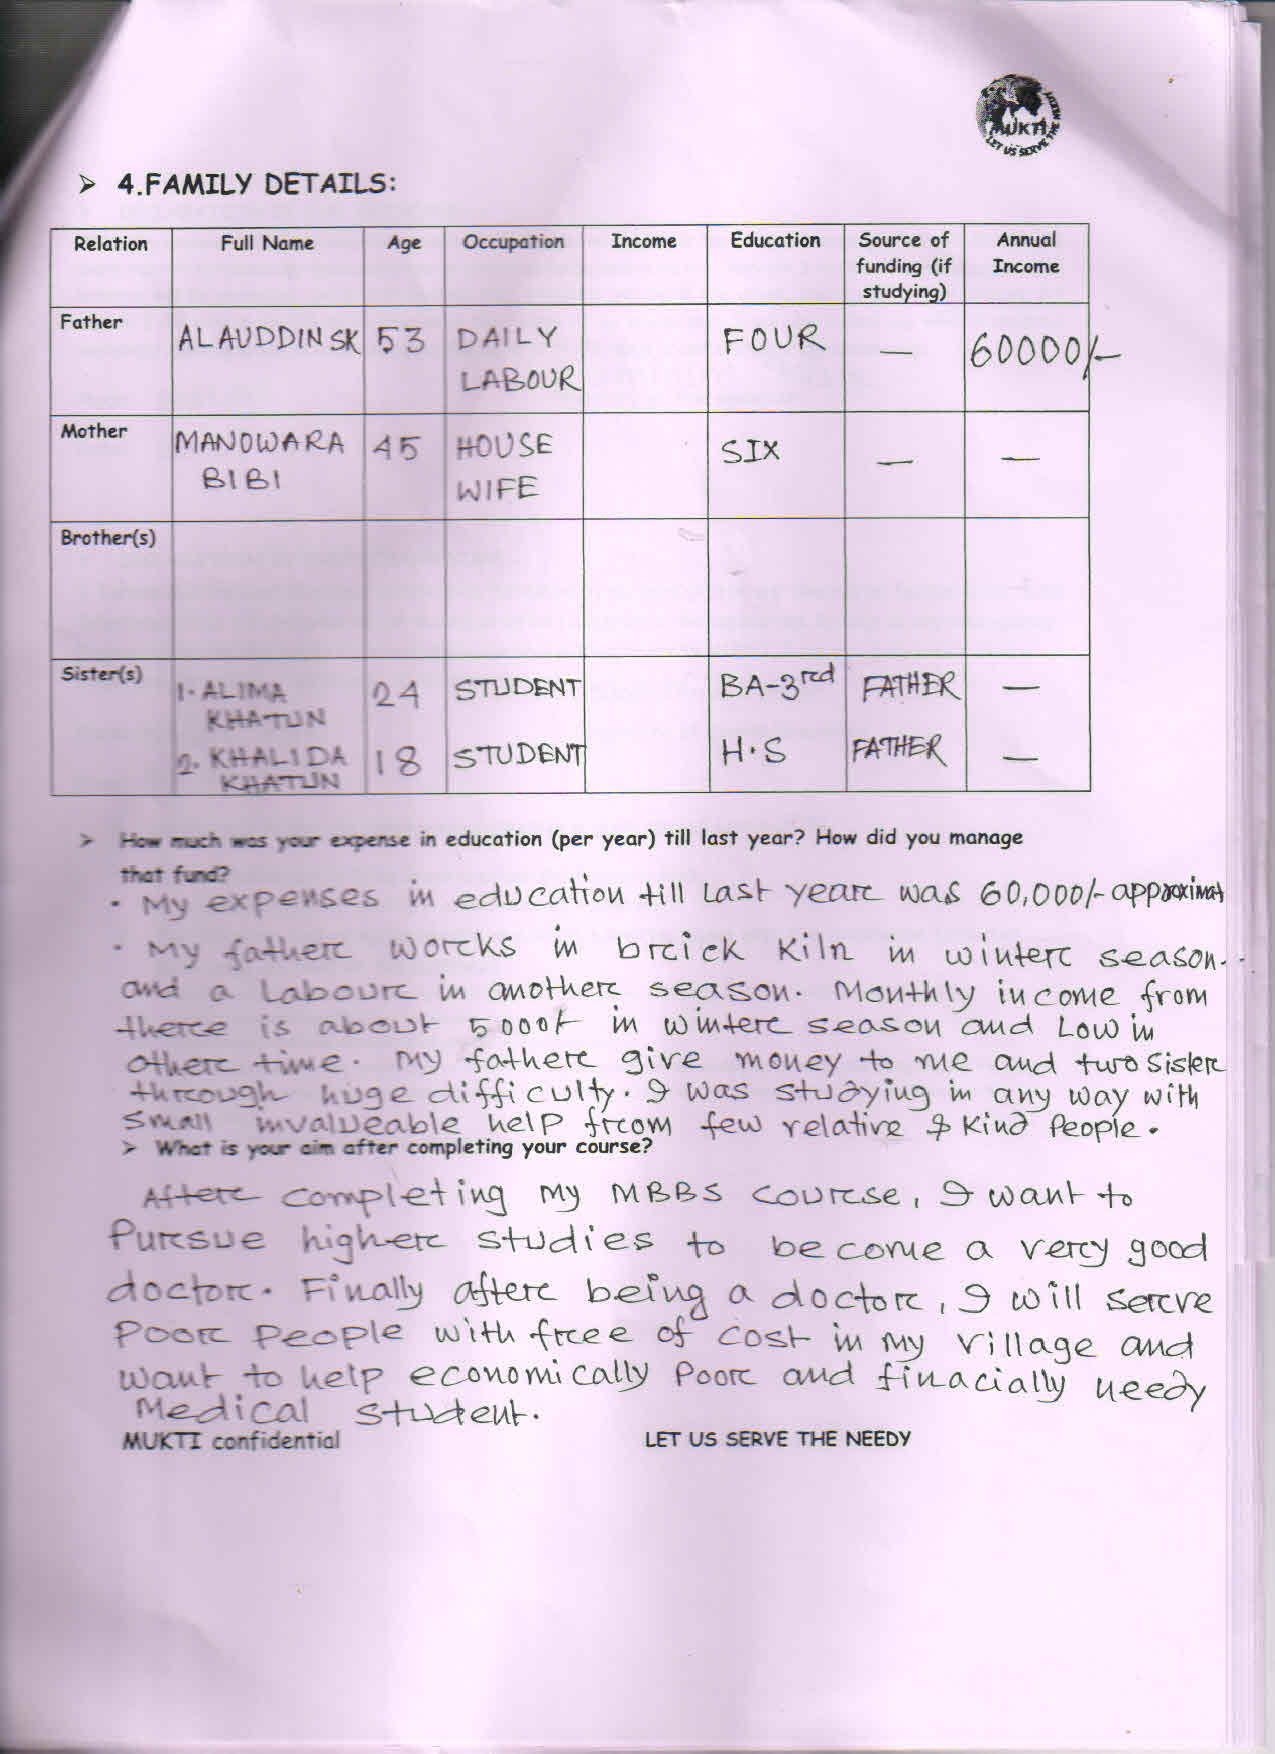 MUKTI
LET US SERVE THE NEEDY
➢ 4.FAMILY DETAILS:
Relation Full Name Age Occupation Income Education Source of funding (if studying) Annual Income
Father ALAUDDIN SK 53 DAILY LABOUR FOUR — 60000/-
Mother MANOWARA BIBI 45 HOUSE WIFE SIX — —
Brother(s)
Sister(s) 1. ALIMA KHATUN 24 STUDENT BA-3rd FATHER —
2. KHALIDA KHATUN 18 STUDENT H.S FATHER —
➢ How much was your expense in education (per year) till last year? How did you manage
that fund?
• My expenses in education till Last year was 60,000/- approximat
• My father works in brick Kiln in winter season.
and a Labour in another season. Monthly income from
there is about 5000/- in winter season and Low in
other time. My father give money to me and two Sister
through huge difficulty. I was studying in any way with
Small invalueable help from few relative & Kind People.
➢ What is your aim after completing your course?
After completing my MBBS course, I want to
Pursue higher studies to become a very good
doctor. Finally after being a doctor, I will serve
Poor People with free of cost in my village and
want to help economically Poor and finacially needy
Medical student.
MUKTI confidential LET US SERVE THE NEEDY